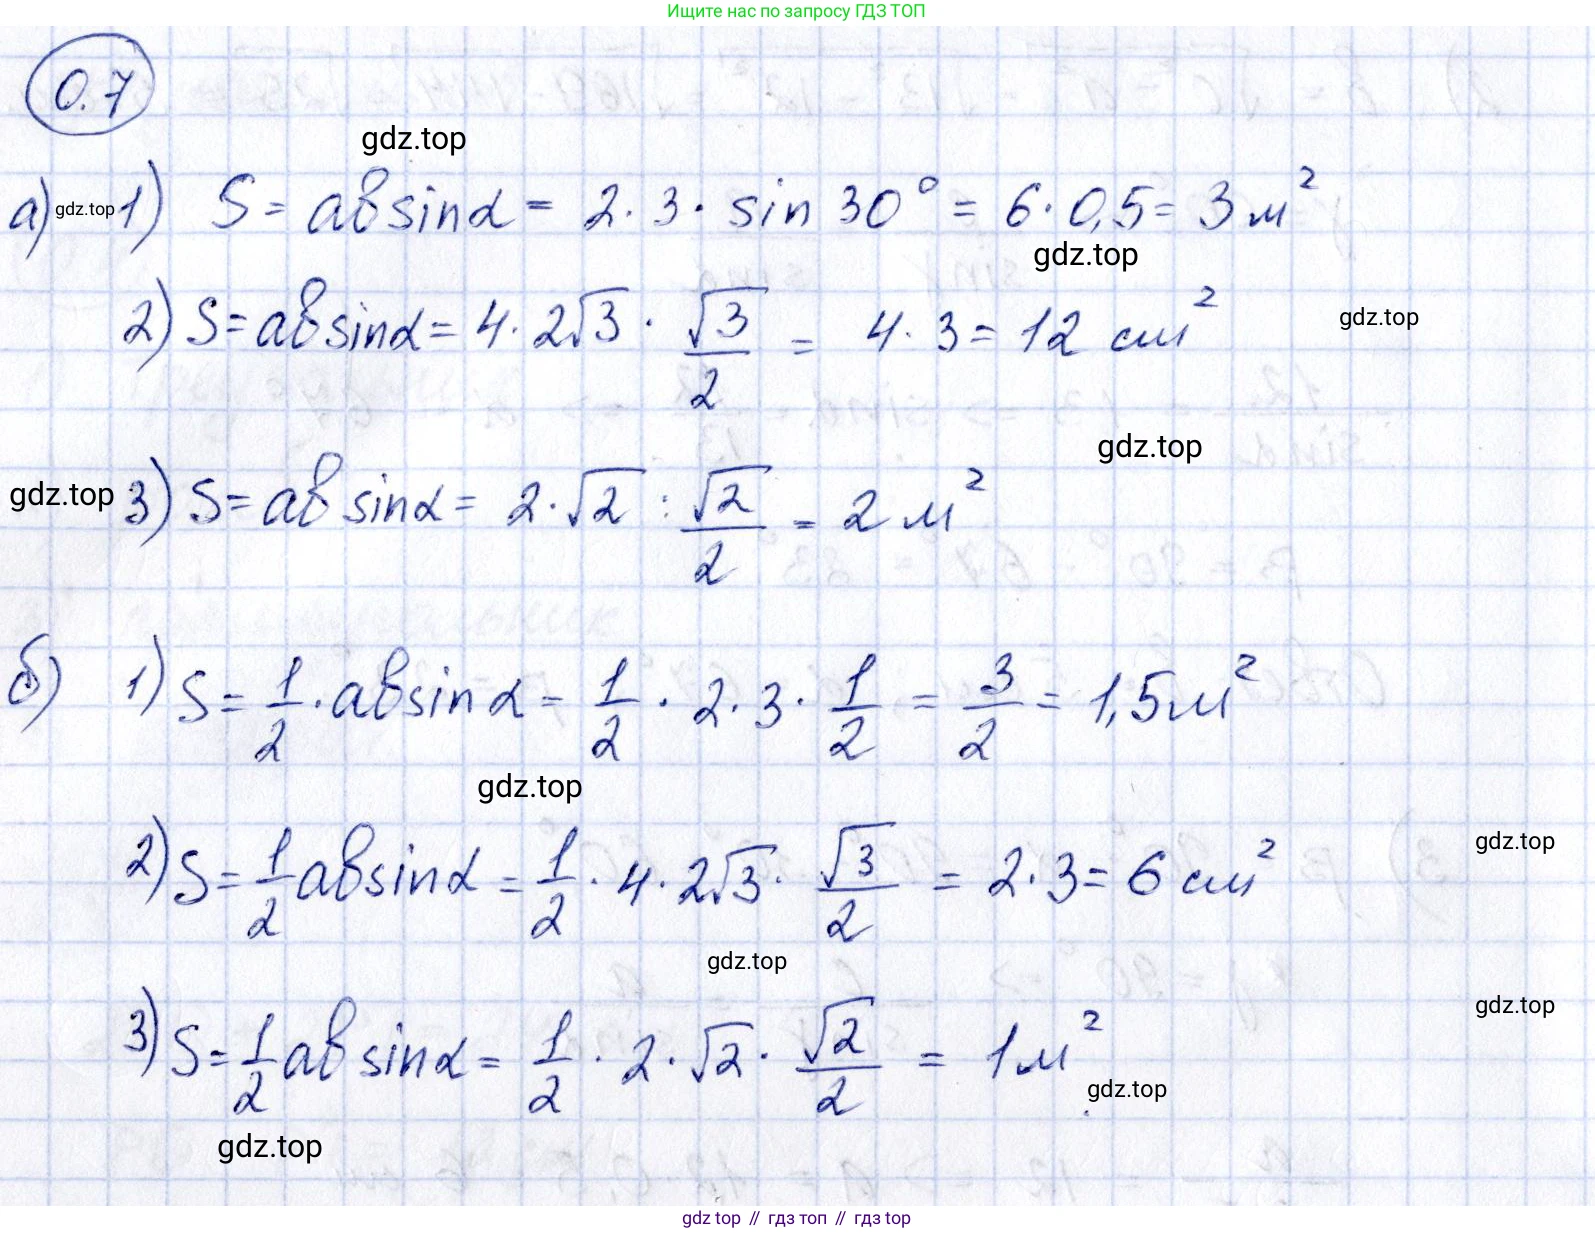 Ищите нас по запросу ГДЗ ТОП
0.7
gdz.top
а) gdz.top 1) S = ab sinα = 2 · 3 · sin 30° = 6 · 0,5 = 3 м²
gdz.top
2) S = ab sinα = 4 · 2√3 · √3/2 = 4 · 3 = 12 см²
gdz.top
gdz.top
gdz.top 3) S = ab sinα = 2 · √2 : √2/2 = 2 м²
б) 1) S = 1/2 · ab sinα = 1/2 · 2 · 3 · 1/2 = 3/2 = 1,5 м²
gdz.top
2) S = 1/2 ab sinα = 1/2 · 4 · 2√3 · √3/2 = 2 · 3 = 6 см²
gdz.top
gdz.top
gdz.top
3) S = 1/2 ab sinα = 1/2 · 2 · √2 · √2/2 = 1 м²
gdz.top
gdz.top
gdz top // гдз топ // gdz top